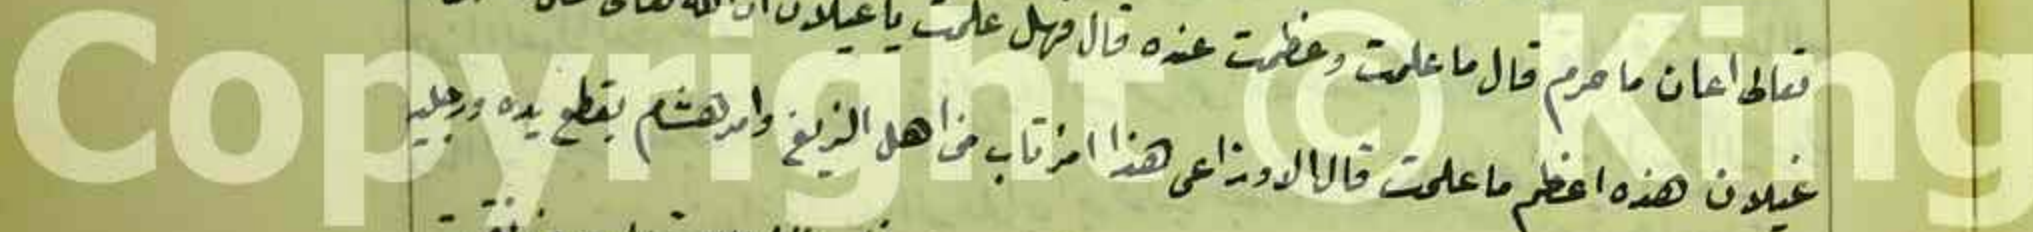 تعالى اعان ما حرم قال ما علمت وعظمت عنده قال فهل علمت يا غيلان ان الله تعالى
غيلان هذه اعظم ما علمت قال الاوزاعى هذا مرتاب من اهل الزيغ وامر هشام بقطع يده ورجليه
Copyright © King